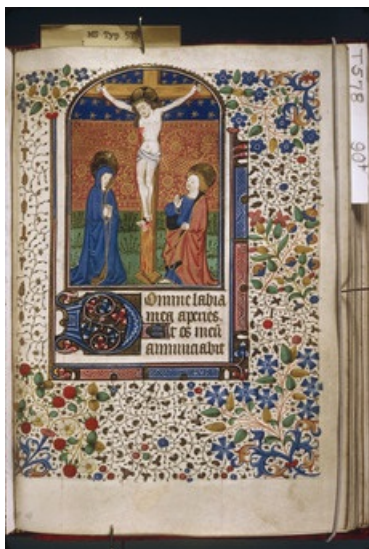 MS Typ 578
T578 90r
Domine labia
mea aperies.
Et os meū
annunciabit